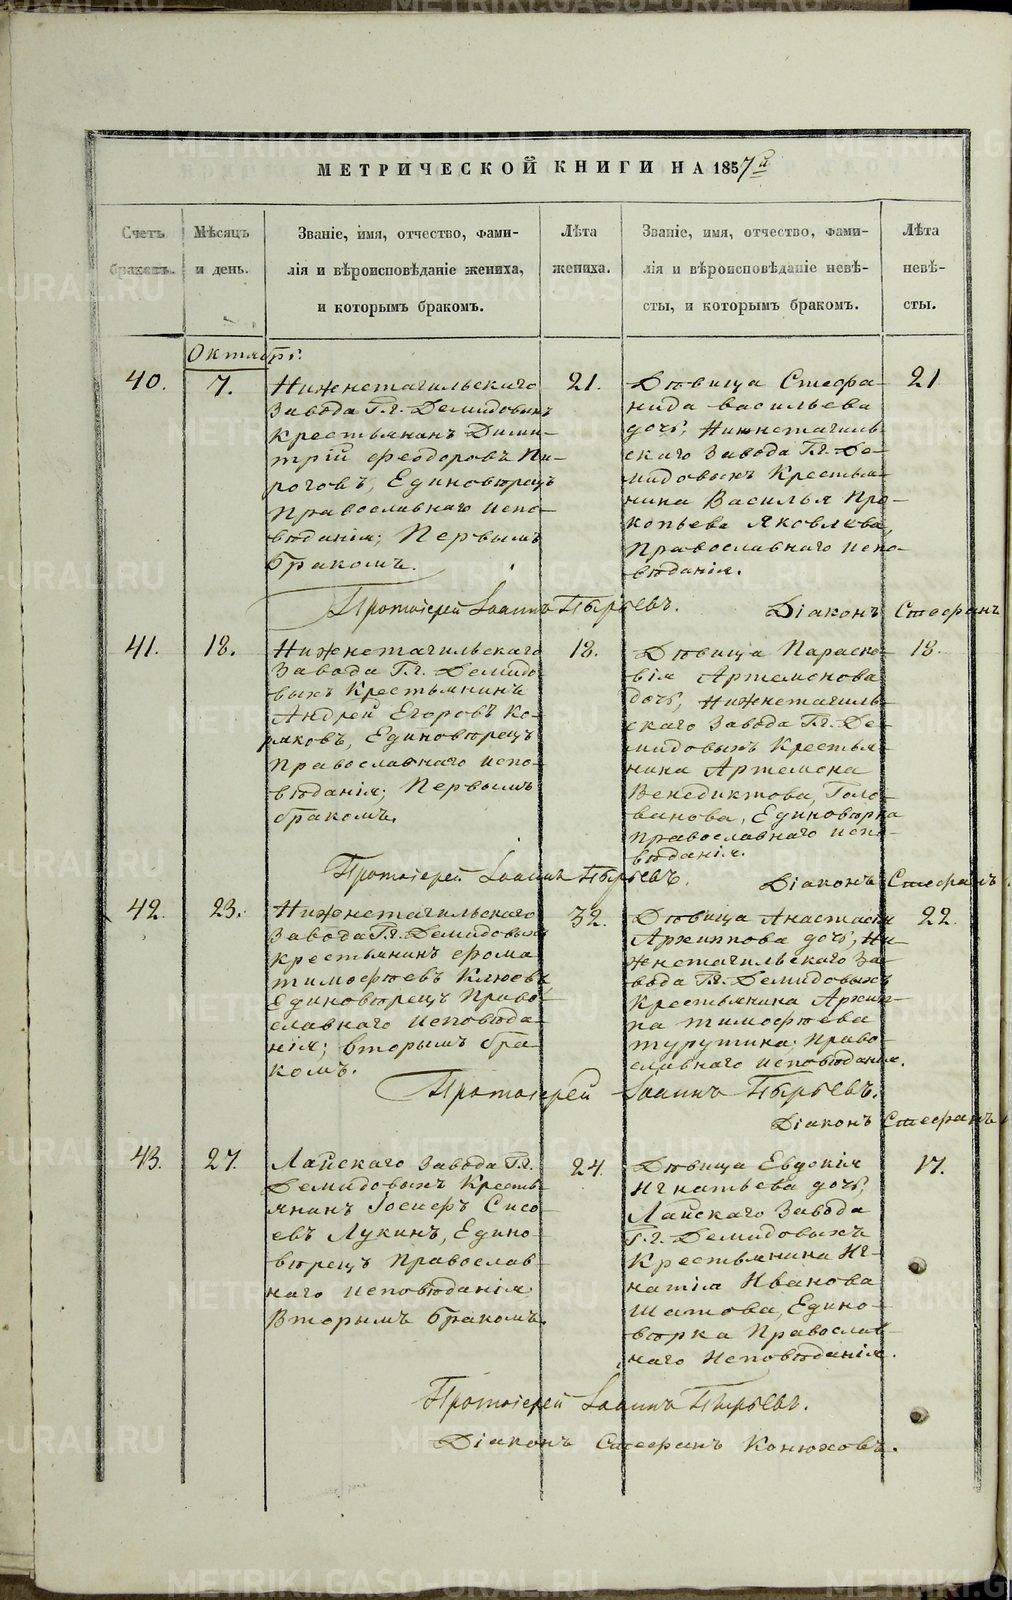 МЕТРИЧЕСКОЙ КНИГИ НА 1857й
Счетъ
браковъ.
Мѣсяцъ
и день.
Званіе, имя, отчество, фами-
лія и вѣроисповѣданіе жениха,
и которымъ бракомъ.
Лѣта
жениха.
Званіе, имя, отчество, фами-
лія и вѣроисповѣданіе невѣ-
сты, и которымъ бракомъ.
Лѣта
невѣ-
сты.
Октябрь.
40.
7.
Нижнетагильскаго
Завода Г.г. Демидовыхъ
Крестьянинъ Дими-
трій Феодоровъ Пи-
роговъ, Единовѣрецъ
Православнаго испо-
вѣданія; Первымъ
бракомъ.
21.
Дѣвица Стефа-
нида Васильева
дочь, Нижнетагиль-
скаго Завода Г.г. Де-
мидовыхъ Крестья-
нина Василья Про-
копьева Яковлева,
Православнаго испо-
вѣданія.
21
Протоіерей Іоаннъ Пырьевъ.
Діаконъ Стефанъ
41.
18.
Нижнетагильскаго
Завода Г.г. Демидо-
выхъ Крестьянинъ
Андрей Егоровъ Ко-
ряковъ, Единовѣрецъ
Православнаго испо-
вѣданія; Первымъ
бракомъ.
18.
Дѣвица Параско-
вія Артемонова
дочь, Нижнетагиль-
скаго Завода Г.г. Де-
мидовыхъ Крестья-
нина Артемона
Венедиктова, Голо-
ванова, Единовѣрка
Православнаго испо-
вѣданія.
18.
Протоіерей Іоаннъ Пырьевъ.
Діаконъ Стефанъ
42.
23.
Нижнетагильскаго
Завода Г.г. Демидовыхъ
Крестьянинъ Фома
Тимофѣевъ Клюевъ
Единовѣрецъ Право-
славнаго Исповѣда-
нія; Вторымъ бра-
комъ.
32.
Дѣвица Анастасія
Архиппова дочь, Ни-
жнетагильскаго За-
вода Г.г. Демидовыхъ
Крестьянина Архип-
па Тимофѣева
Турутина. Право-
славнаго исповѣданія.
22.
Протоіерей Іоаннъ Пырьевъ.
Діаконъ Стефанъ
43.
27.
Лайскаго Завода Г.г.
Демидовыхъ Кресть-
янинъ Іосифъ Сисо-
евъ Лукинъ, Едино-
вѣрецъ Православ-
наго исповѣданія.
Вторымъ бракомъ.
24.
Дѣвица Евдокія
Игнатьева дочь,
Лайскаго Завода
Г.г. Демидовыхъ
Крестьянина Иг-
натія Иванова
Шатова, Едино-
вѣрка Православ-
наго Исповѣданія.
17.
Протоіерей Іоаннъ Пырьевъ.
Діаконъ Стефанъ Конюховъ.